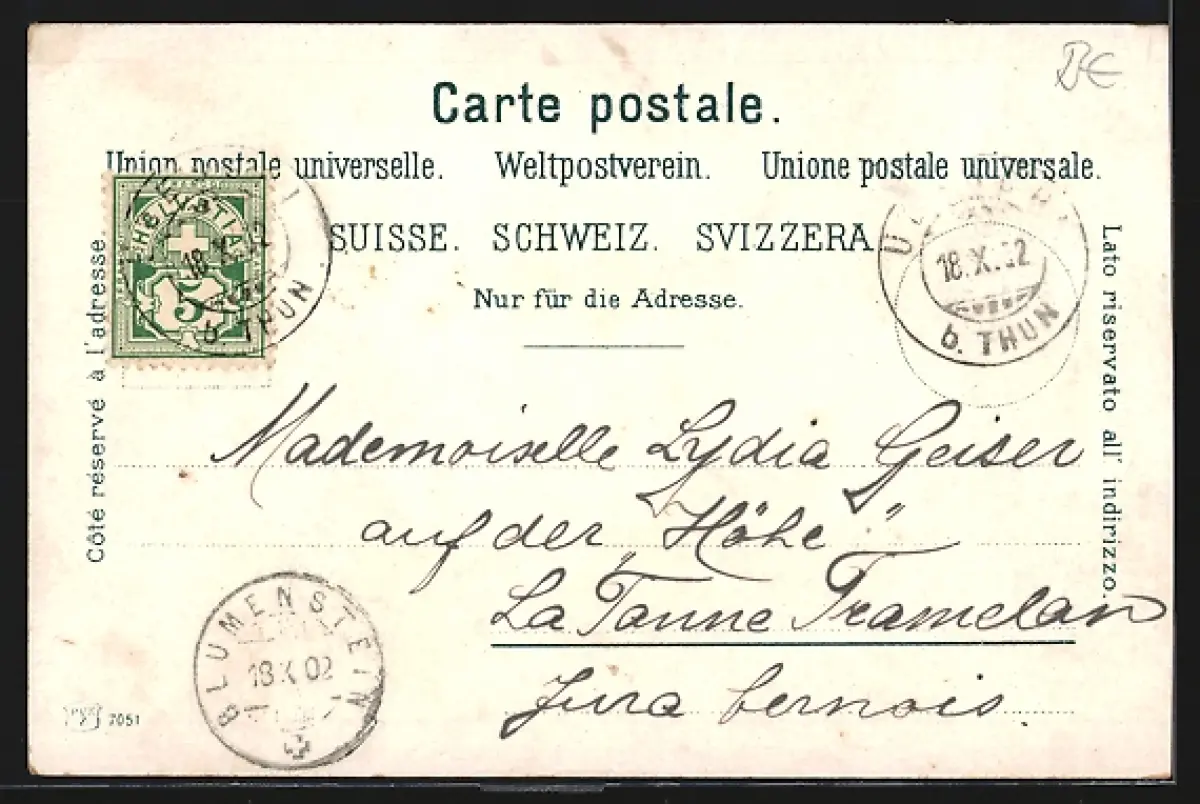 Carte postale.
Union postale universelle. Weltpostverein. Unione postale universale.
SUISSE. SCHWEIZ. SVIZZERA
Nur für die Adresse.
Côté réservé à l'adresse.
Lato riservato all' indirizzo.
HELVETIA
5
18.X.02
b. THUN
18.X.02
b. THUN
Mademoiselle Lydia Geiser
auf der „Höhe"
La Tanne Tramelan
Jura bernois.
BLUMENSTEIN
18 X 02
7051
BE